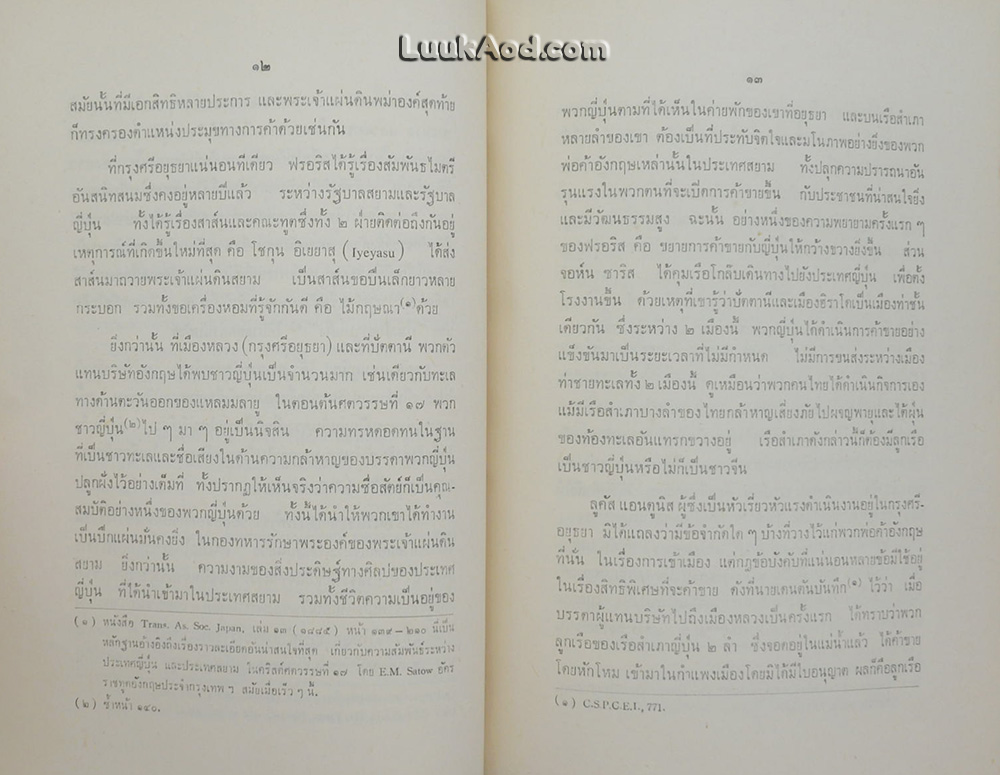 LuukAod.com
๑๒
สมัยนั้นที่มีเอกสิทธิหลายประการ และพระเจ้าแผ่นดินพม่าองค์สุดท้าย
ก็ทรงครองตำแหน่งประมุขทางการค้าด้วยเช่นกัน
ที่กรุงศรีอยุธยาแน่นอนทีเดียว ฟรอริสได้รู้เรื่องสัมพันธไมตรี
อันสนิทสนมซึ่งคงอยู่หลายปีแล้ว ระหว่างรัฐบาลสยามและรัฐบาล
ญี่ปุ่น ทั้งได้รู้เรื่องสาส์นและคณะทูตซึ่งทั้ง ๒ ฝ่ายติดต่อถึงกันอยู่
เหตุการณ์ที่เกิดขึ้นใหม่ที่สุด คือ โชกุน อิเยยาสุ (Iyeyasu) ได้ส่ง
สาส์นมาถวายพระเจ้าแผ่นดินสยาม เป็นสาส์นขอปืนเล็กยาวหลาย
กระบอก รวมทั้งขอเครื่องหอมที่รู้จักกันดี คือ ไม้กฤษณา(๑)ด้วย
ยิ่งกว่านั้น ที่เมืองหลวง (กรุงศรีอยุธยา) และที่ปัตตานี พวกตัว
แทนบริษัทอังกฤษได้พบชาวญี่ปุ่นเป็นจำนวนมาก เช่นเดียวกับทะเล
ทางด้านตะวันออกของแหลมมลายู ในตอนต้นศตวรรษที่ ๑๗ พวก
ชาวญี่ปุ่น(๒)ไป ๆ มา ๆ อยู่เป็นนิจสิน ความทรหดอดทนในฐาน
ที่เป็นชาวทะเลและชื่อเสียงในด้านความกล้าหาญของบรรดาพวกญี่ปุ่น
ปลูกฝังไว้อย่างเต็มที่ ทั้งปรากฏให้เห็นจริงว่าความซื่อสัตย์ก็เป็นคุณ-
สมบัติอย่างหนึ่งของพวกญี่ปุ่นด้วย ทั้งนี้ได้นำให้พวกเขาได้ทำงาน
เป็นปึกแผ่นมั่นคงยิ่ง ในกองทหารรักษาพระองค์ของพระเจ้าแผ่นดิน
สยาม ยิ่งกว่านั้น ความงามของสิ่งประดิษฐ์ทางศิลปของประเทศ
ญี่ปุ่น ที่ได้นำเข้ามาในประเทศสยาม รวมทั้งชีวิตความเป็นอยู่ของ
(๑) หนังสือ Trans. As. Soc. Japan, เล่ม ๑๓ (๑๘๘๕) หน้า ๑๓๙ – ๒๑๐ นี้เป็น
หลักฐานอ้างอิงถึงเรื่องราวละเอียดอันน่าสนใจที่สุด เกี่ยวกับความสัมพันธ์ระหว่าง
ประเทศญี่ปุ่น และประเทศสยาม ในคริสต์ศตวรรษที่ ๑๗ โดย E.M. Satow อัคร
ราชทูตอังกฤษประจำกรุงเทพ ฯ สมัยเมื่อเร็ว ๆ นี้.
(๒) ซ้ำหน้า ๑๔๐.
๑๓
พวกญี่ปุ่นตามที่ได้เห็นในค่ายพักของเขาที่อยุธยา และบนเรือสำเภา
หลายลำของเขา ต้องเป็นที่ประทับจิตใจและมโนภาพอย่างยิ่งของพวก
พ่อค้าอังกฤษเหล่านั้นในประเทศสยาม ทั้งปลุกความปรารถนาอัน
รุนแรงในพวกตนที่จะเปิดการค้าขายขึ้น กับประชาชนที่น่าสนใจยิ่ง
และมีวัฒนธรรมสูง ฉะนั้น อย่างหนึ่งของความพยายามครั้งแรก ๆ
ของฟรอริส คือ ขยายการค้าขายกับญี่ปุ่นให้กว้างขวางยิ่งขึ้น ส่วน
จอห์น ซาริส ได้คุมเรือโกล๊บเดินทางไปยังประเทศญี่ปุ่น เพื่อตั้ง
โรงงานขึ้น ด้วยเหตุที่เขารู้ว่าปัตตานีและเมืองฮิราโดเป็นเมืองท่าชั้น
เดียวกัน ซึ่งระหว่าง ๒ เมืองนี้ พวกญี่ปุ่นได้ดำเนินการค้าขายอย่าง
แข็งขันมาเป็นระยะเวลาที่ไม่มีกำหนด ไม่มีการขนส่งระหว่างเมือง
ท่าชายทะเลทั้ง ๒ เมืองนี้ ดูเหมือนว่าพวกคนไทยได้ดำเนินกิจการเอง
แม้มีเรือสำเภาบางลำของไทยกล้าหาญเสี่ยงภัยไปผจญพายุและไต้ฝุ่น
ของท้องทะเลอันแทรกขวางอยู่ เรือสำเภาดังกล่าวนี้ก็ต้องมีลูกเรือ
เป็นชาวญี่ปุ่นหรือไม่ก็เป็นชาวจีน
ลูคัส แอนตูนิส ผู้ซึ่งเป็นหัวเรี่ยวหัวแรงดำเนินงานอยู่ในกรุงศรี-
อยุธยา มิได้แถลงว่ามีข้อจำกัดใด ๆ บ้างที่วางไว้แก่พวกพ่อค้าอังกฤษ
ที่นั่น ในเรื่องการเข้าเมือง แต่กฎข้อบังคับที่แน่นอนหลายข้อมีใช้อยู่
ในเรื่องสิทธิพิเศษที่จะค้าขาย ดังที่นายเดนตันบันทึก(๑) ไว้ว่า เมื่อ
บรรดาผู้แทนบริษัทไปถึงเมืองหลวงเป็นครั้งแรก ได้ทราบว่าพวก
ลูกเรือของเรือสำเภาญี่ปุ่น ๒ ลำ ซึ่งจอดอยู่ในแม่น้ำแล้ว ได้ค้าขาย
โดยหักโหม เข้ามาในกำแพงเมืองโดยมิได้มีใบอนุญาต ผลก็คือลูกเรือ
(๑) C.S.P.C.E.I., 771.